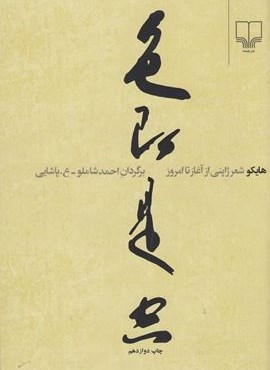 色
即
是
空
هایکو شعر ژاپنی از آغاز تا امروز
برگردان احمد شاملو - ع. پاشایی
چاپ دوازدهم